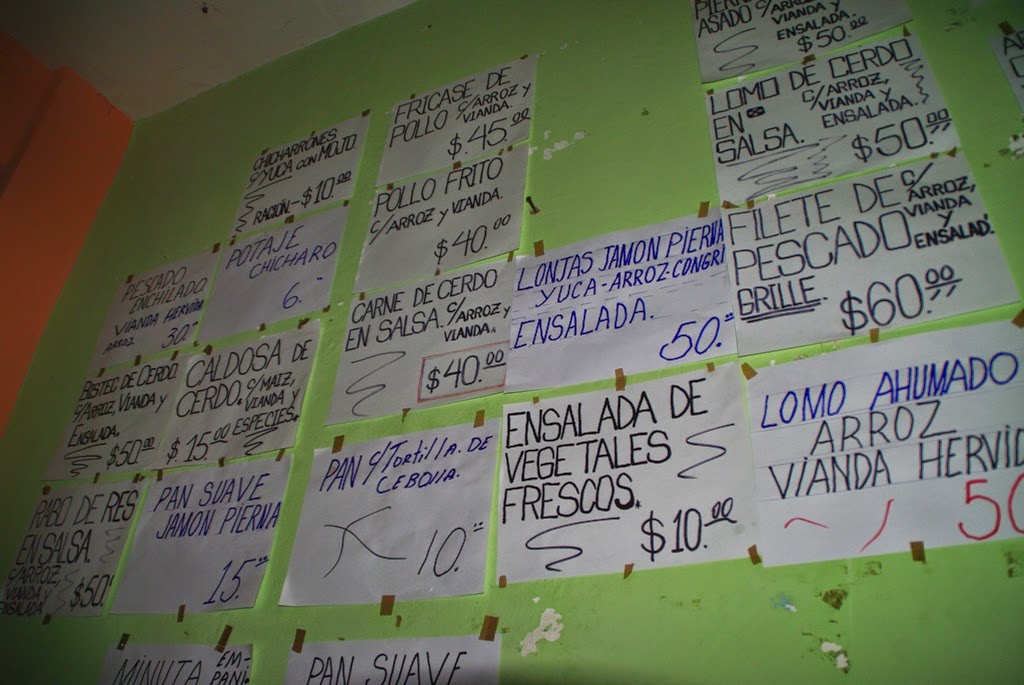 CHICHARRÓNES
C/YUCA CON MOJO
RACIÓN-$10.00
FRICASE DE
POLLO C/ARROZ Y
VIANDA.
$45.00
ASADO C/ARROZ
VIANDA Y
ENSALADA.
$50.00
LOMO DE CERDO
EN C/ARROZ,
SALSA. VIANDA Y
ENSALADA.
$50.00
PESCADO
ENCHILADO
VIANDA HERVIDA
ARROZ 30.
POTAJE
CHICHARO
6.
POLLO FRITO
C/ARROZ Y VIANDA.
$40.00
CARNE DE CERDO
EN SALSA. C/ARROZ Y
VIANDA.
$40.00
LONJAS JAMON PIERNA
YUCA-ARROZ-CONGRI
ENSALADA.
50.
FILETE DE C/
PESCADO ARROZ,
GRILLE. VIANDA
Y
ENSALAD.
$60.00
BISTEC DE CERDO.
C/ARROZ, VIANDA Y
ENSALADA.
$50.00
CALDOSA DE
CERDO. C/MAIZ,
VIANDA Y
$15.00 ESPECIES.
RABO DE RES
EN SALSA.
C/ARROZ,
VIANDA Y
ENSALADA $50.
PAN SUAVE
JAMON PIERNA
15.
PAN C/TORTILLA. DE
CEBOLLA.
10.
ENSALADA DE
VEGETALES
FRESCOS.
$10.00
LOMO AHUMADO
ARROZ
VIANDA HERVID
50
MINUTA EM-
PANI-
PAN SUAVE